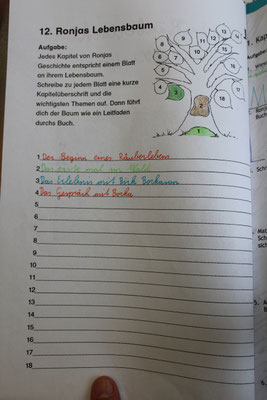 12. Ronjas Lebensbaum
Aufgabe:
Jedes Kapitel von Ronjas
Geschichte entspricht einem Blatt
an ihrem Lebensbaum.
Schreibe zu jedem Blatt eine kurze
Kapitelüberschrift und die
wichtigsten Themen auf. Dann führt
dich der Baum wie ein Leitfaden
durchs Buch.
1 Der Beginn eines Räuberlebens
2 Das erste mal im Wald
3 Das Erlebnis mit Birk Borkason
4 Das Gespräch mit Borka
5
6
7
8
9
10
11
12
13
14
15
16
17
18